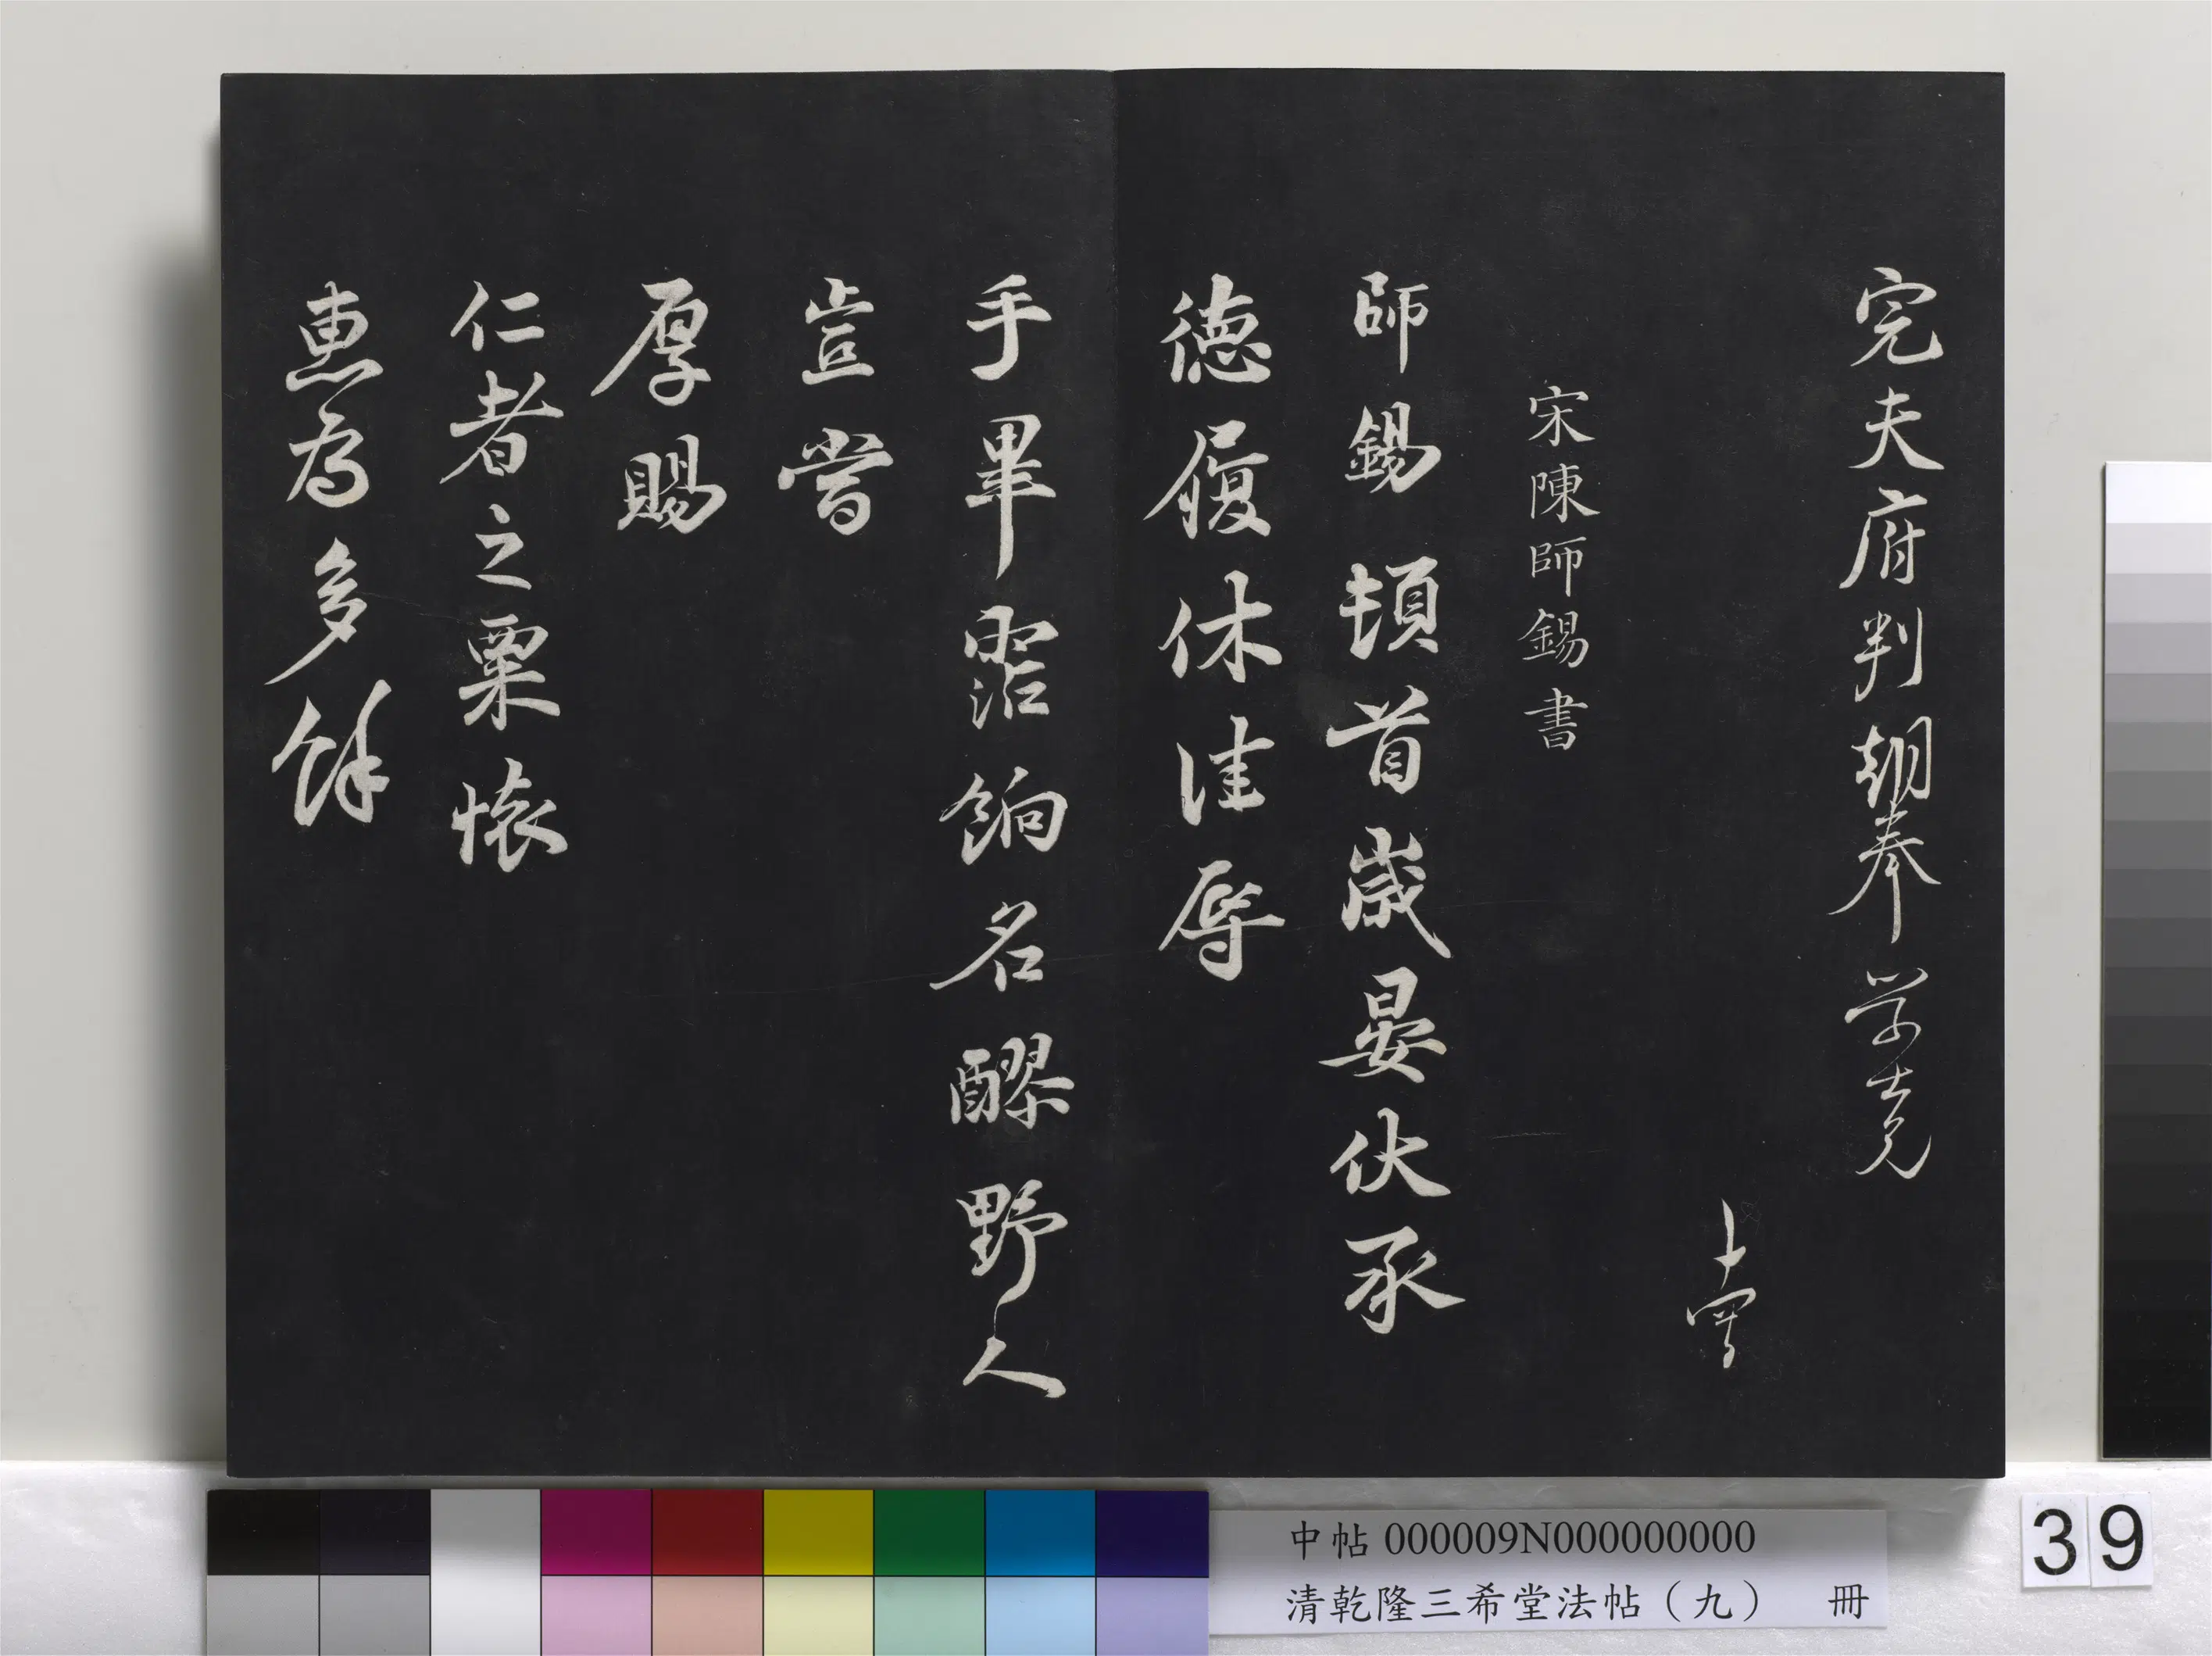 完夫府判朝奉学士兄
宋陳師錫書
師錫頓首歲晏伏承
德履休佳辱
手畢霑餉名醪野人
豈嘗
厚賜
仁者之粟懷
惠為多餘
中帖 000009N000000000
清乾隆三希堂法帖（九） 冊
39